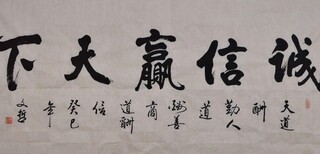 诚信赢天下
天道
酬
勤人
道
酬善
商
道酬
信
癸巳
年
文哲